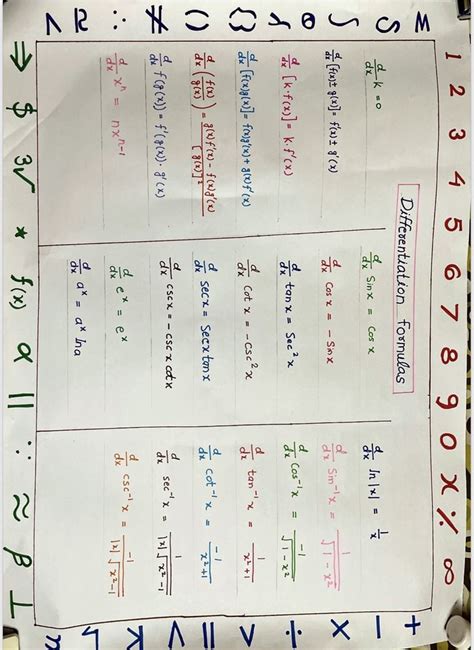 1 2 3 4 5 6 7 8 9 0 x % ∞
Differentiation formulas
d/dx k = 0
d/dx [f(x) ± g(x)] = f'(x) ± g'(x)
d/dx [k·f(x)] = k·f'(x)
d/dx [f(x)g(x)] = f(x)g'(x) + g(x)f'(x)
d/dx (f(x)/g(x)) = (g(x)f'(x) − f(x)g'(x))/[g(x)]²
d/dx f(g(x)) = f'(g(x))·g'(x)
d/dx xⁿ = nxⁿ⁻¹
d/dx Sinx = Cosx
d/dx Cosx = −Sinx
d/dx tanx = Sec²x
d/dx Cotx = −csc²x
d/dx secx = Secxtanx
d/dx cscx = −cscxcotx
d/dx eˣ = eˣ
d/dx aˣ = aˣ lna
d/dx ln|x| = 1/x
d/dx Sin⁻¹x = 1/√(1−x²)
d/dx Cos⁻¹x = −1/√(1−x²)
d/dx tan⁻¹x = 1/(x²+1)
d/dx cot⁻¹x = −1/(x²+1)
d/dx sec⁻¹x = 1/(|x|√(x²−1))
d/dx csc⁻¹x = −1/(|x|√(x²−1))
⇒ $ 3√ * f(x) α || ∵ ≈ β ⊥